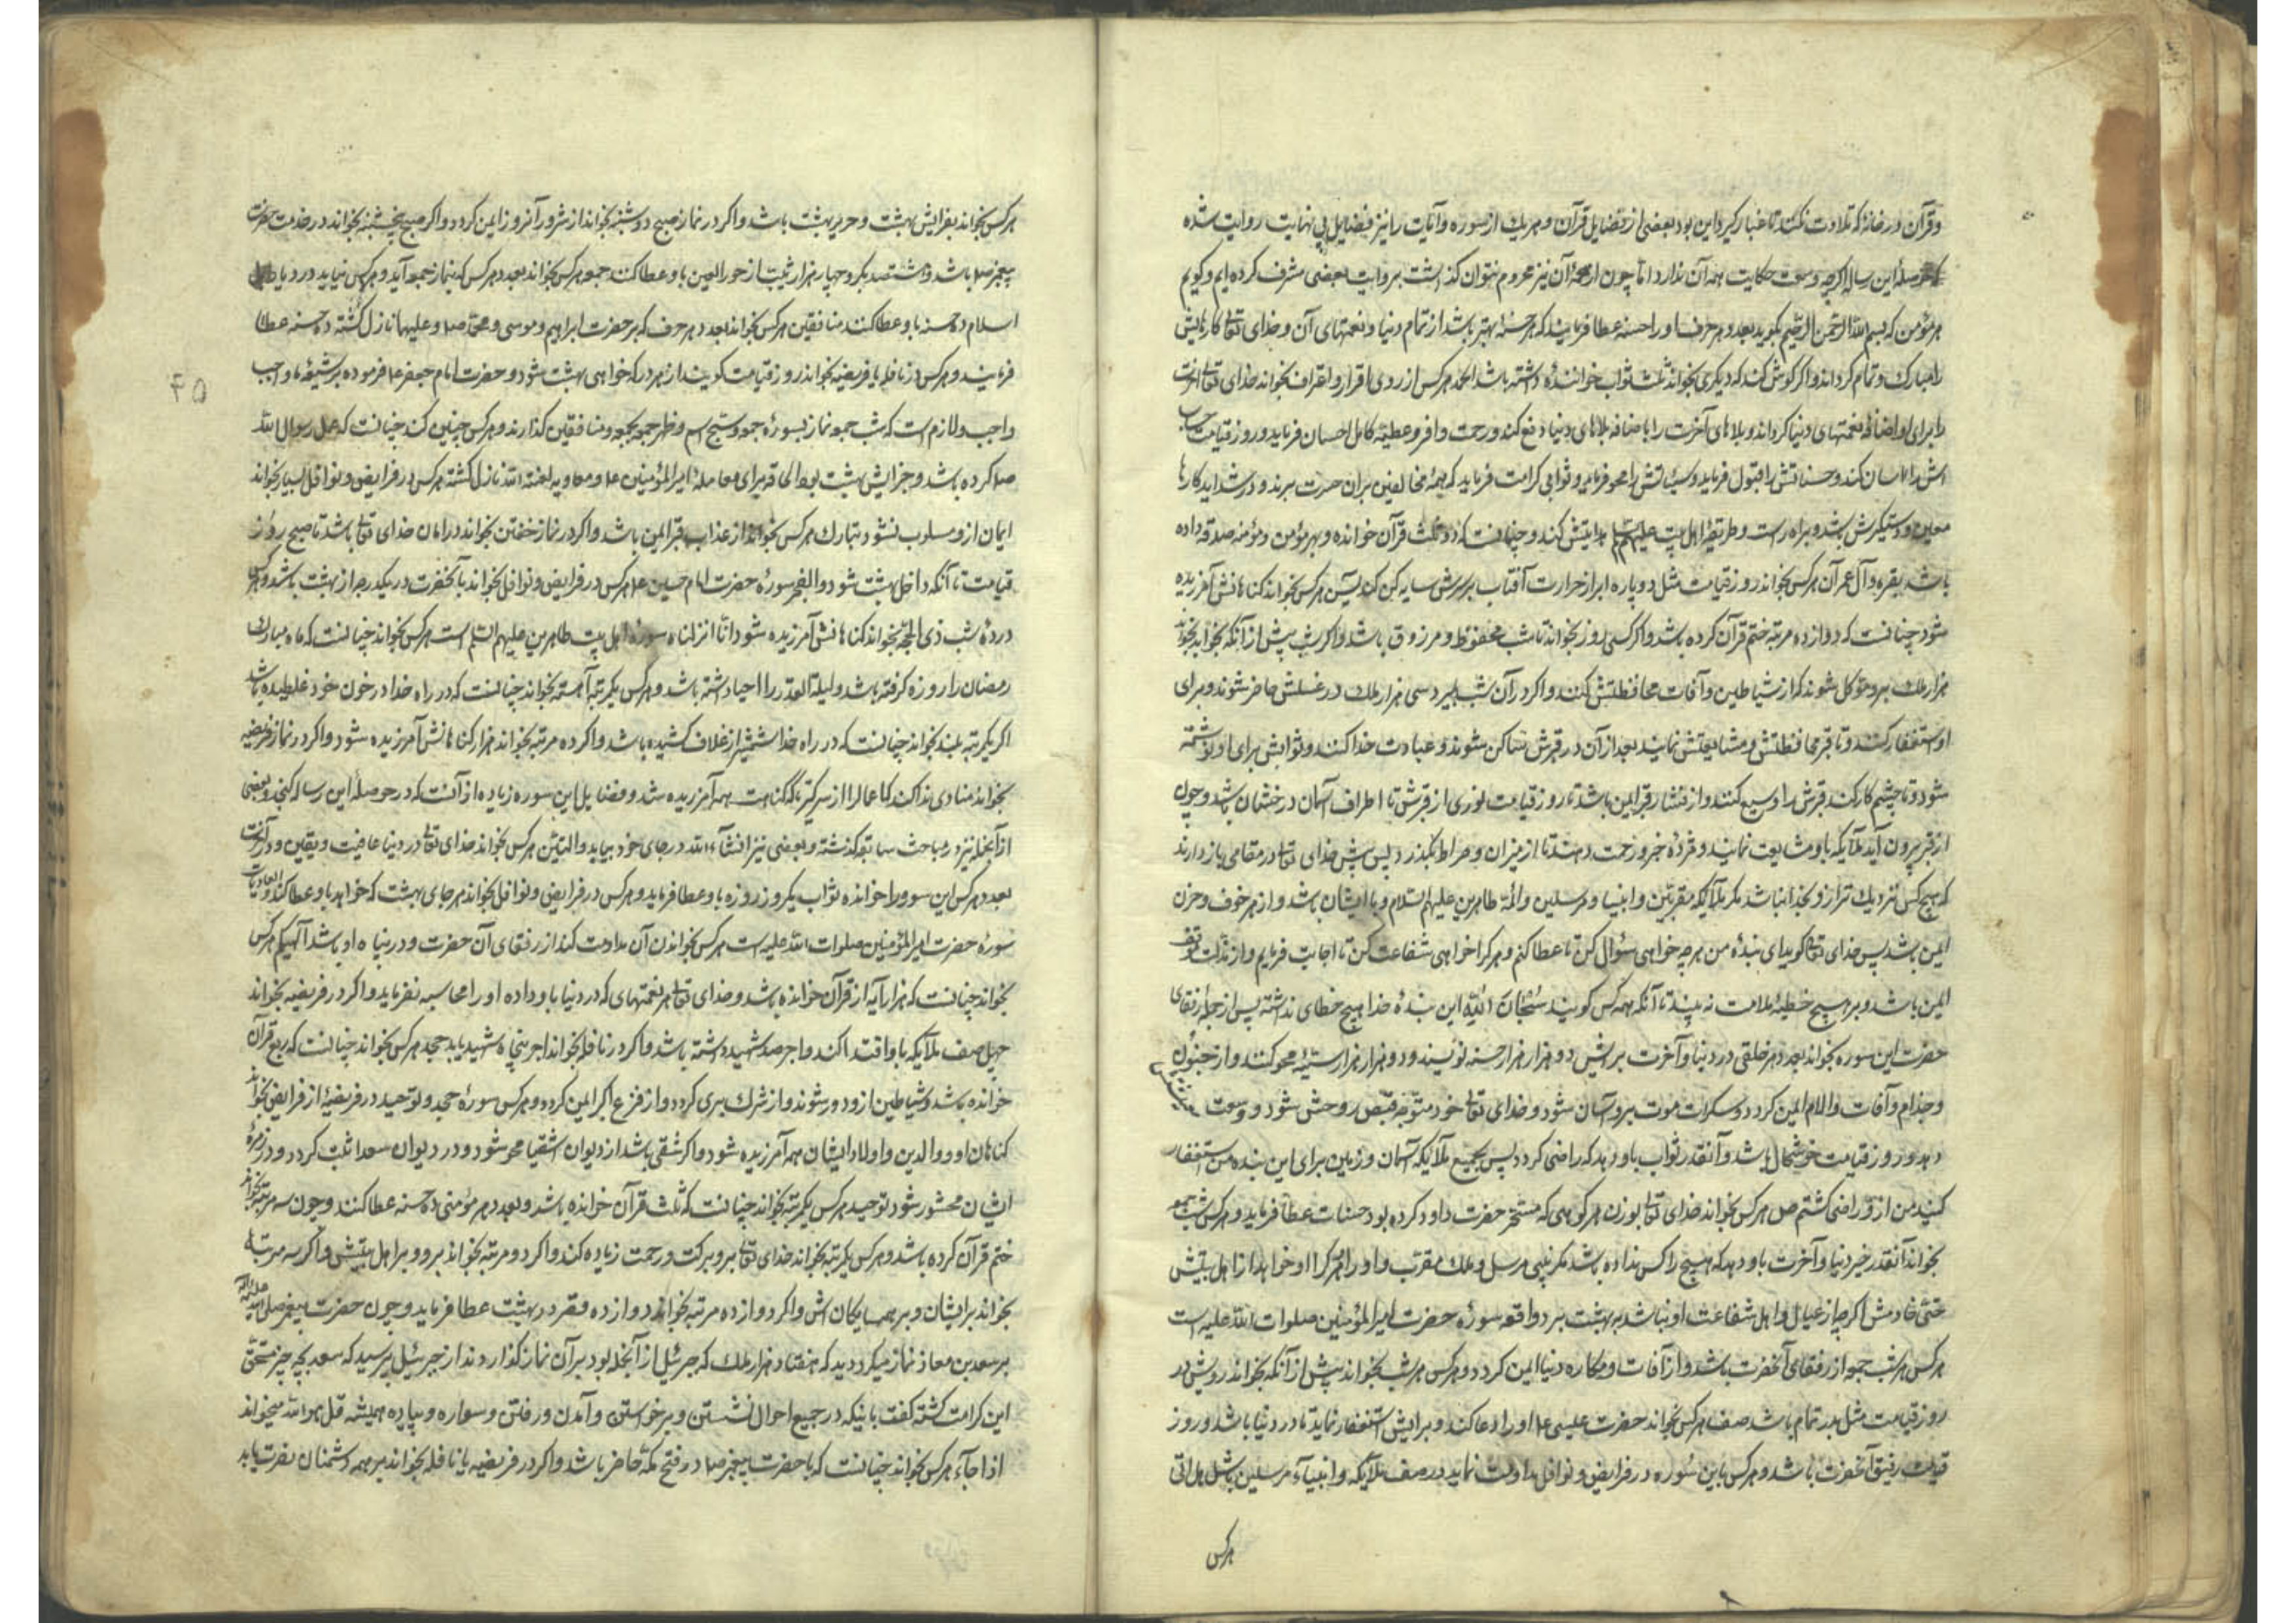 وقرآن در خانهٔ که تلاوت نکنند تا غبار گیرد این بود بعضی از فضایل قرآن و هر یك از سوره و آیات را نیز فضایل بی نهایت روایت شده
این رساله اگرچه وسعت حکایت همه آن ندارد اما چون از همهٔ آن نیز محروم نتوان گذاشت بروایت بعضی مشرف کرده ایم و گویم
هر مؤمن که بسم الله الرحمن الرحیم بگوید بعدد هر حرف او را حسنه عطا فرمایند که هر حسنهٔ بهتر باشد از تمام دنیا و نعمتهای آن و خدای تعالی کارهایش
را مبارك و تمام گرداند و اگر گوش کند که دیگری بخواند ثلث ثواب خوانندهٔ داشته باشد الحمد هر کس از روی اقرار و اعتراف بخواند خدای تعالی آخرت
را برای او اضافهٔ نعمتهای دنیا گرداند و بلاهای آخرت را باضافه بلاهای دنیا دفع کند و رحمت وافر و عطیهٔ کامل احسان فرماید و روز قیامت حساب
اش را آسان کند و حسناتش را قبول فرماید و سیئاتش را محو فرماید و ثوابی کرامت فرماید که همهٔ مخالفین بران حسرت برند و در شداید کارها
معین و دستگیرش باشد و براه راست و طریقهٔ اهل بیت علیهم هدایتش کند و چنانست که دو ثلث قرآن خوانده و بهر مؤمن و مؤمنه صدقه داده
باشد بقره و آل عمران هر کس بخواند روز قیامت مثل دو پاره ابر از حرارت آفتاب بر سرش سایه کن کند یٓس هر کس بخواند گناهانش آمرزیده
شود چنانست که دوازده مرتبه ختم قرآن کرده باشد و اگر کسی روز بخواند تا شب محفوظ و مرزوق باشد و اگر شب پیش از آنکه بخوابد بخواند
هزار ملك برو موکل شوند که از شیاطین و آفات محافظتش کنند و اگر در آن شب بمیرد سی هزار ملك در غسلش حاضر شوند و برای
او استغفار کنند و تا قبر محافظتش و مشایعتش نمایند بعد از آن در قبرش ساکن شوند و عبادت خدا کنند و ثوابش برای او نوشته
شود و تا چشم کار کند قبرش را وسیع کنند و از فشار قبر ایمن باشد تا روز قیامت نوری از قبرش تا اطراف آسمان درخشان باشد و چون
از قبر بیرون آید ملائکه با او مشایعت نمایند و مژدهٔ خیر و رحمت دهند تا از میزان و صراط بگذرد پس پیش خدای تعالی در مقامی باز دارند
که هیچ کس نزدیك تر از و بخدا نباشد مگر ملائکه مقربین و انبیا و مرسلین و ائمهٔ طاهرین علیهم السلام و با ایشان باشد و از هر خوف و حزن
ایمن باشد پس خدای تعالی گوید ای بندهٔ من هر چه خواهی سؤال کن تا عطا کنم و هر کرا خواهی شفاعت کن تا اجابت فرمایم و از ذلت و توقف
ایمن باشد و بر هیچ خطیهٔ ملامت نه بیند تا آنکه همه کس گویند سُبحَانَ اللّٰهِ این بندهٔ خدا هیچ خطای نداشته پس از جملهٔ رفقای
حضرت این سوره بخواند بعدد هر خلقی در دنیا و آخرت برایش دو هزار هزار حسنه نویسند و دو هزار هزار سیئه محو کنند و از جنون
و جذام و آفات و آلام ایمن گردد و سکرات موت برو آسان شود و خدای تعالی خود متوجه قبض روحش شود و وسعت
دهد و روز قیامت خوشحال باشد و آنقدر ثواب باو دهد که راضی گردد پس بجمیع ملائکه آسمان و زمین برای این بنده من استغفار
کنید من از و راضی گشتم ص هر کس بخواند خدای تعالی بوزن هر کوهی که مسخر حضرت داود کرده بود حسنات عطا فرماید و هر کس شب جمعه
بخواند آنقدر خیر دنیا و آخرت باو دهد که هیچ را کس نداده باشد مگر نبی مرسل و ملك مقرب و او را و هر کرا او خواهد از اهل بیتش
حتی خادمش اگرچه از عیال و اهل شفاعت او نباشد به بهشت برد واقعه سورهٔ حضرت امیر المؤمنین صلوات الله علیه است
هر کس هر شب جمعه از رفقای آنحضرت باشد و از آفات و مکاره دنیا ایمن گردد و هر کس هر شب بخواند پیش از آنکه بخوابد رویش در
روز قیامت مثل بدر تمام باشد صف هر کس بخواند حضرت عیسی ع او را دعا کند و برایش استغفار نماید تا در دنیا باشد و روز
قیامت رفیق آنحضرت باشد و هر کس باین سُوره در فرایض و نوافل مداومت نماید در صف ملائکه و انبیاء مرسلین باشد هل اتی
هر کس
هر کس بخواند جزایش بهشت و حریر بهشت باشد و اگر در نماز صبح دوشنبه بخواند از شرور آنروز ایمن گردد و اگر صبح پنجشنبه بخواند در خدمت حضرت
پیغمبر ص باشد و هشتصد بکر و چهار هزار ثیبت از حور العین باو عطا کند جمعه هر کس بخواند بعدد هر کس که بنماز جمعه آید و هر کس نیاید در دیار
اسلام ده حسنه باو عطا کنند منافقین هر کس بخواند بعدد هر حرف که بر حضرت ابراهیم و موسی و محمد ص و علیهما نازل گشته ده حسنه عطا
فرمایند و هر کس در نافله یا فریضه بخواند روز قیامت گویند از هر در که خواهی بهشت شو و حضرت امام جعفر ع فرموده بر شیعهٔ ما واجب
۴۵
واجب و لازم است که شب جمعه نماز بسورهٔ جمعه و سبح اسم و ظهر جمعه بجمعه و منافقین گذارند و هر کس چنین کند چنانست که عمل رسول الله
ص کرده باشد و جزایش بهشت بود الحاقه برای معاملهٔ امیر المؤمنین ع و معاویه لعنه الله نازل گشته هر کس در فرایض و نوافل بسیار بخواند
ایمان از و مسلوب نشود تبارك هر کس بخواند از عذاب قبر ایمن باشد و اگر در نماز خفتن بخواند در امان خدای تعالی باشد تا صبح روز
قیامت تا آنکه داخل بهشت شود و الفجر سورهٔ حضرت امام حسین ع هر کس در فرایض و نوافل بخواند با آنحضرت در یکدرجه از بهشت باشد و هر کس
در دهٔ شب ذی الحجه بخواند گناهانش آمرزیده شود انا انزلناه سورهٔ اهل بیت طاهرین علیهم السلم است هر کس بخواند چنانست که ماه مبارك
رمضان را روزه گرفته باشد و لیلة القدر را احیا داشته باشد و هر کس یکمرتبه آهسته بخواند چنانست که در راه خدا در خون خود غلطیده باشد
اگر یکمرتبه بلند بخواند چنانست که در راه خدا شمشیر از غلاف کشیده باشد و اگر ده مرتبه بخواند هزار گناهانش آمرزیده شود و اگر در نماز فریضه
بخواند منادی ندا کند که اعمال را از سر گیر که گناهت همه آمرزیده شد و فضایل این سوره زیاده از آنست که در حوصلهٔ این رساله گنجد و بعضی
از آنجمله نیز در مباحث سابقه گذشته و بعضی نیز انشآء الله در جای خود بیاید والتین هر کس بخواند خدای تعالی در دنیا عافیت و یقین و در آخرت
بعدد هر کس این سوره را خوانده ثواب یکروز روزه باو عطا فرماید و هر کس در فرایض و نوافل بخواند هر جای بهشت که خواهد باو عطا کند والعادیات
سورهٔ حضرت امیر المؤمنین صلوات الله علیه است هر کس بخواندن آن مداومت کند از رفقای آن حضرت و در پناه او باشد الهیکم هر کس
بخواند چنانست که هزار آیه از قرآن خوانده باشد و خدای تعالی هر نعمتهای که در دنیا باو داده او را محاسبه نفرماید و اگر در فریضه بخواند
چهل صف ملائکه باو اقتدا کند و اجر صد شهید داشته باشد و اگر در نافله بخواند اجر پنجاه شهید یابد جحد هر کس بخواند چنانست که ربع قرآن
خوانده باشد و شیاطین از و دور شوند و از شرك بری گردد و از فزع اکبر ایمن گردد و هر کس سورهٔ جحد و توحید در فریضهٔ از فرایض بخواند
گناهان او و والدین و اولاد ایشان همه آمرزیده شود و اگر شقی باشد از دیوان اشقیا محو شود و در دیوان سعدا ثبت گردد و در زمرهٔ
ایشان محشور شود توحید هر کس یکمرتبه بخواند چنانست که ثلث قرآن خوانده باشد و بعدد هر مؤمنی ده حسنه عطا کنند و چون سه مرتبه بخواند
ختم قرآن کرده باشد و هر کس یکمرتبه بخواند خدای تعالی برو برکت و رحمت زیاده کند و اگر دو مرتبه بخواند برو و بر اهل بیتش و اگر سه مرتبه
بخواند بر ایشان و بر همسایگان اش و اگر دوازده مرتبه بخواند دوازده قصر در بهشت عطا فرماید و چون حضرت پیغمبر صلی الله علیه و آله
بر سعد بن معاذ نماز میکرد دید که هفتاد هزار ملك که جبرئیل از آنجمله بود بر آن نماز گذاردند از جبرئیل پرسید که سعد بچه چیز مستحق
این کرامت گشته گفت باینکه در جمیع احوال نشستن و برخوستن و آمدن و رفتن و سواره و پیاده همیشه قل هو الله میخواند
اذا جآء هر کس بخواند چنانست که با حضرت پیغمبر ص در فتح مکه حاضر باشد و اگر در فریضه یا نافله بخواند بر همه دشمنان نصرت یابد